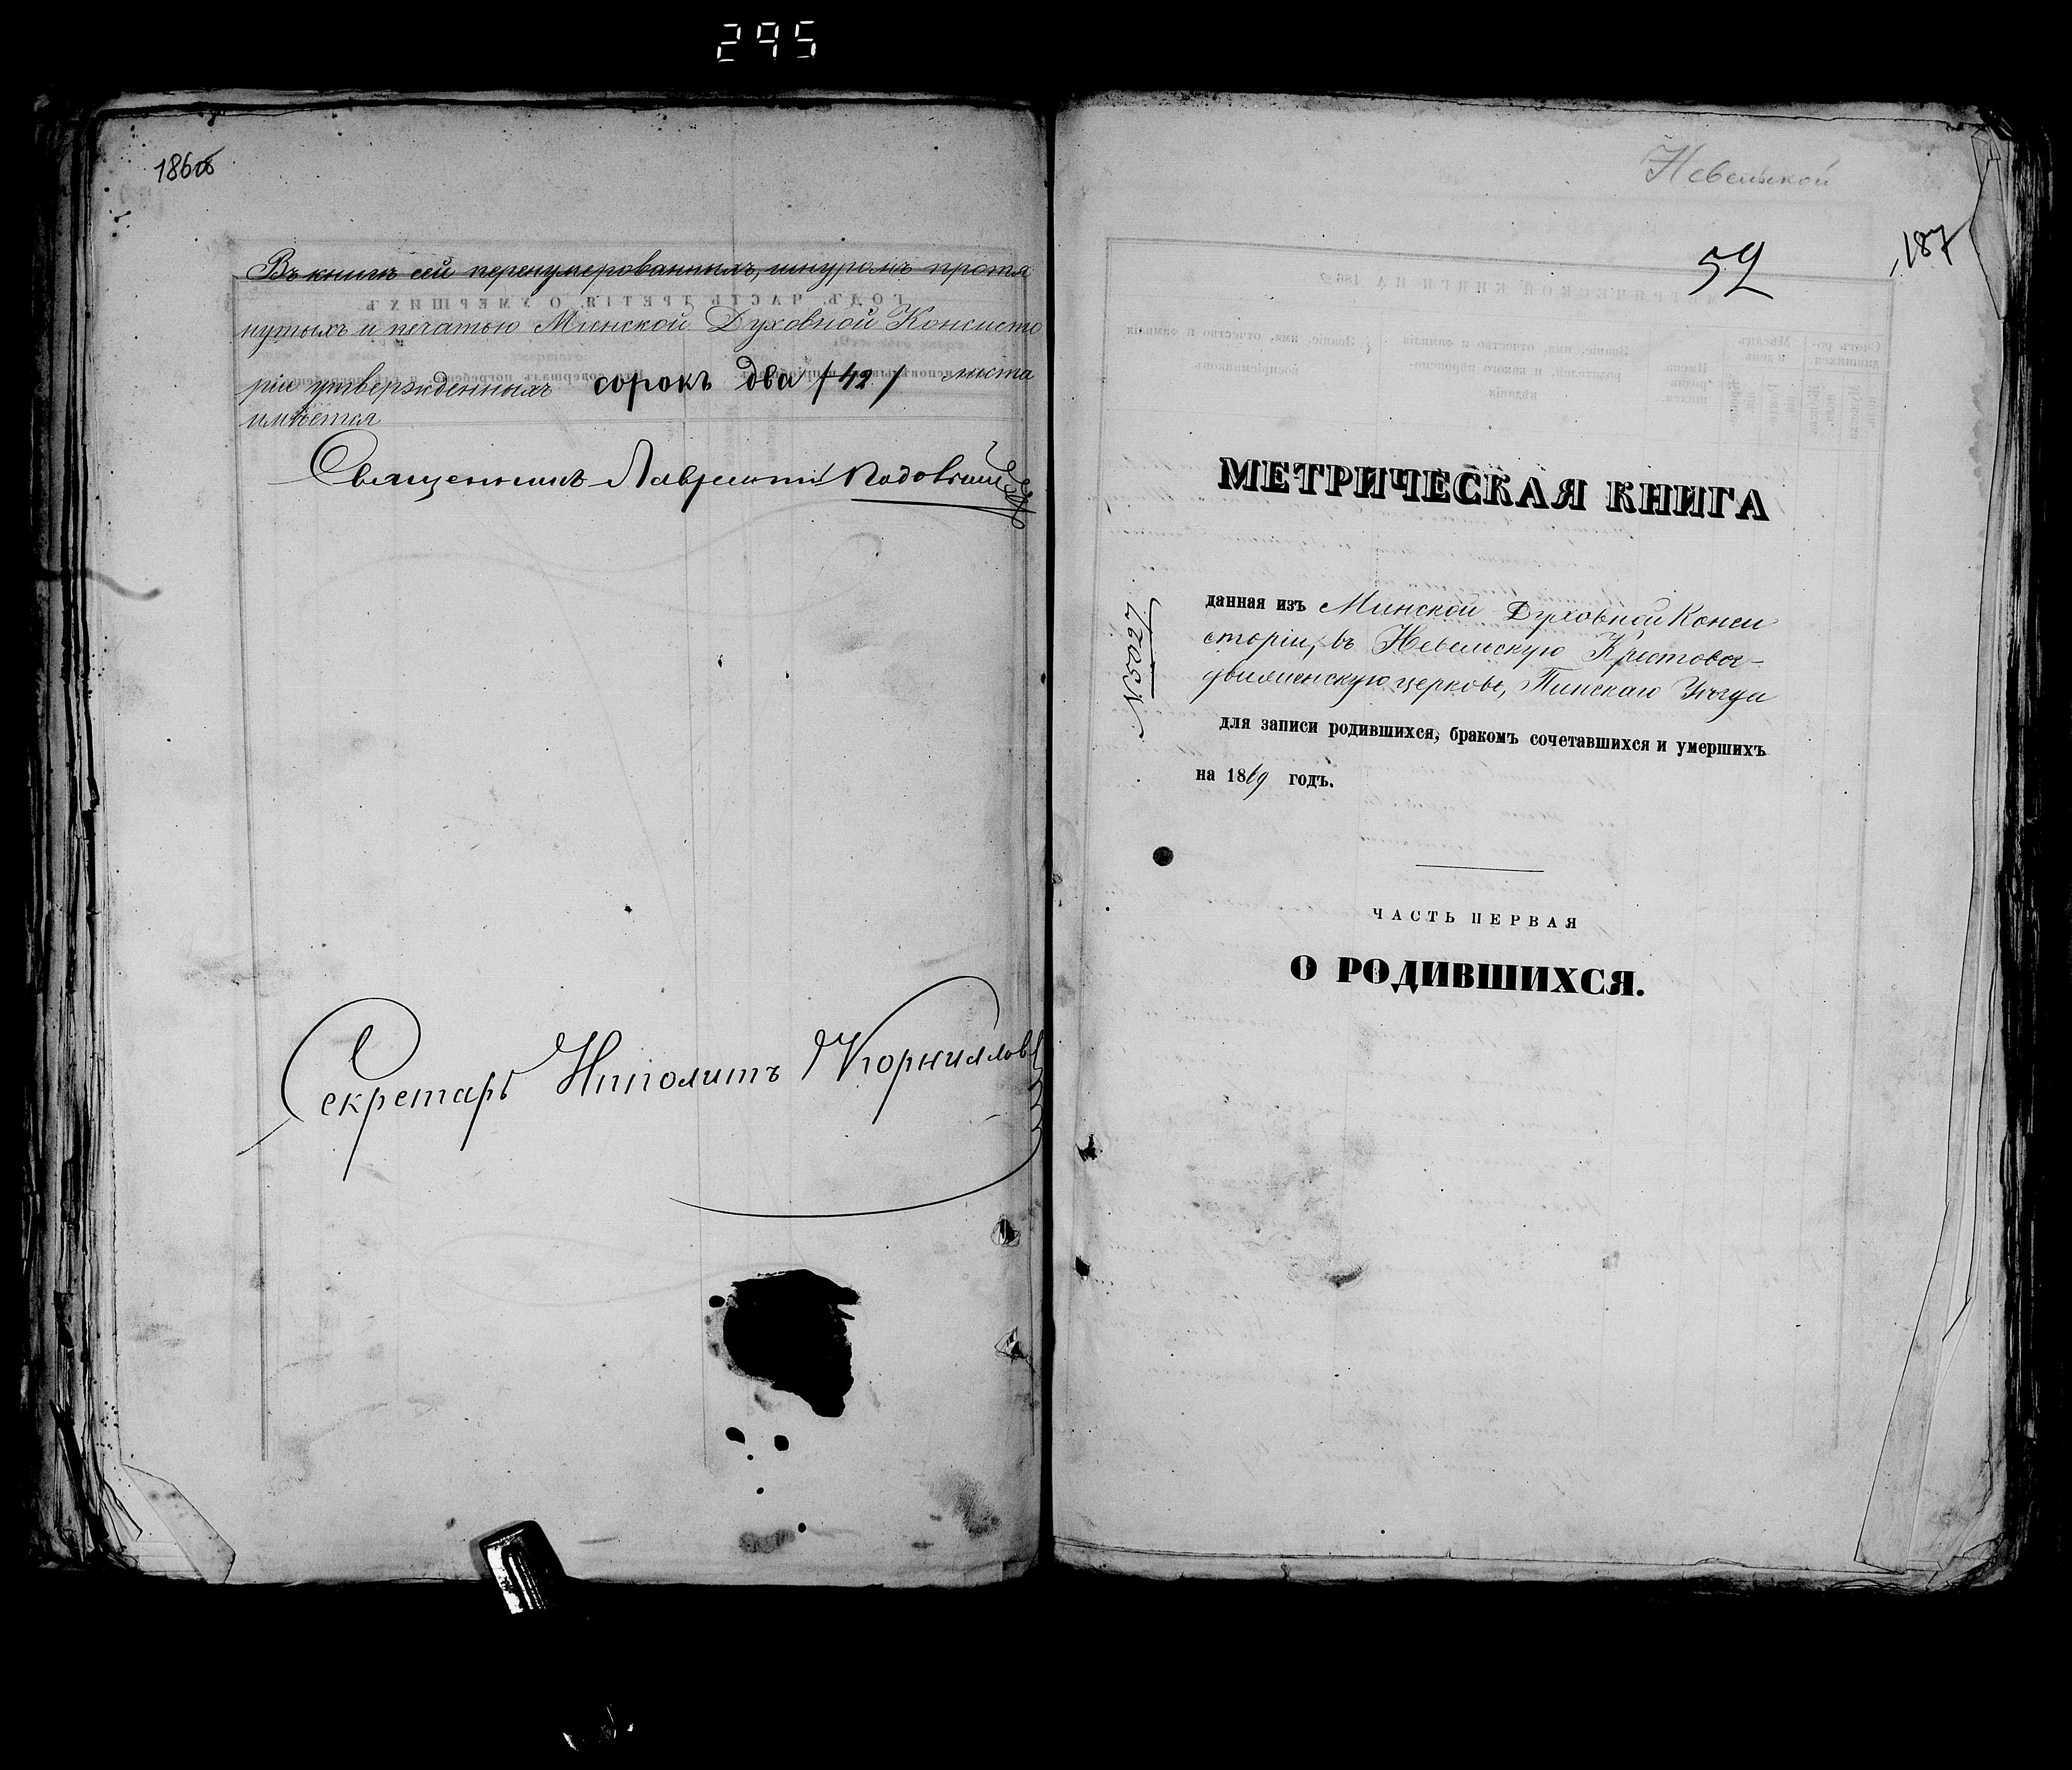 295
186
Въ книгѣ сей перенумерованныхъ, шнуромъ протя
нутыхъ и печатью Минской Духовной Консисто
ріи утвержденныхъ сорокъ два /42/ листа
имѣется
Священникъ Лаврентій
Секретарь Ипполитъ Корниловъ
Невельской
52
187
МЕТРИЧЕСКАЯ КНИГА
данная изъ Минской Духовной Конси
сторіи, въ Невельскую Крестовоз-
движенскую церковь, Пинскаго Уѣзда
№ 5027
для записи родившихся, бракомъ сочетавшихся и умершихъ
на 1869 годъ.
ЧАСТЬ ПЕРВАЯ
О РОДИВШИХСЯ.